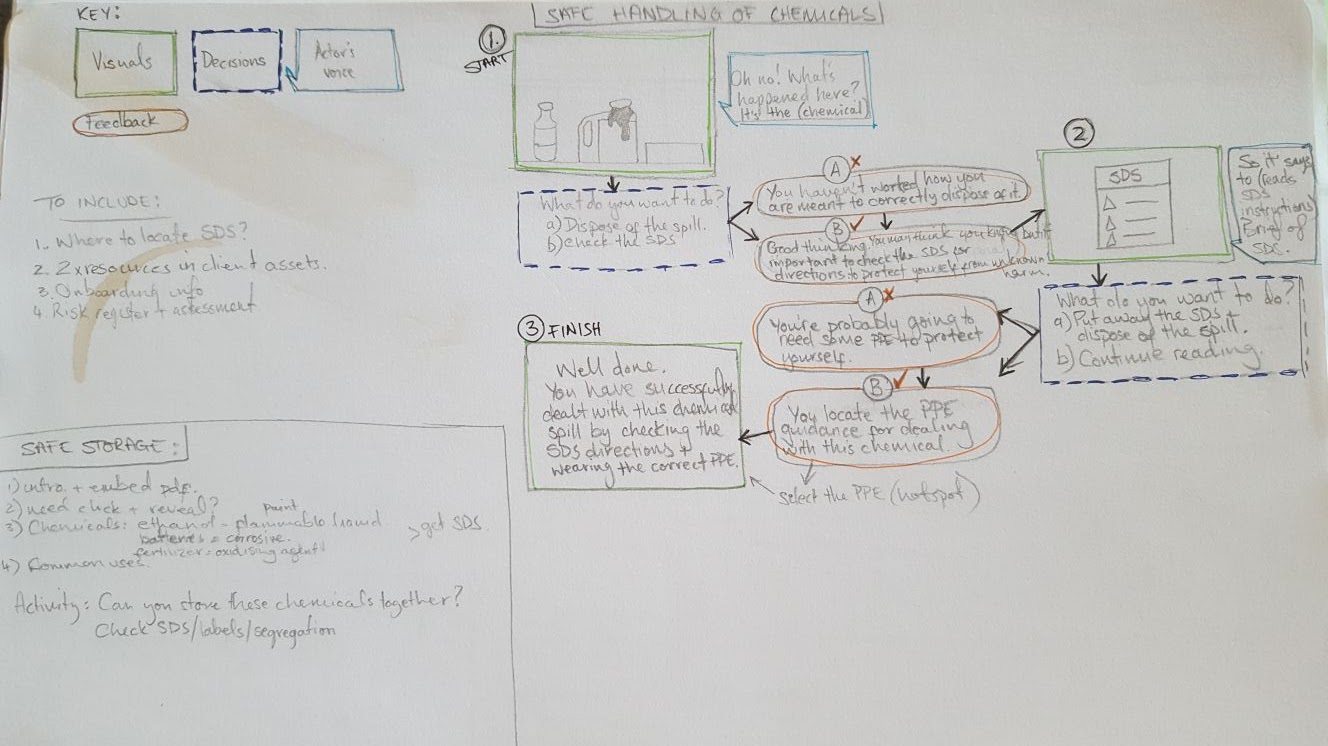 KEY:
Visuals
Decisions
Actor's
voice
Feedback
SAFE HANDLING OF CHEMICALS
1.
START
Oh no! What's
happened here?
It's the (chemical)
What do you want to do?
a) Dispose of the spill.
b) check the SDS
A x
You haven't worked how you
are meant to correctly dispose of it.
B ✓
Good thinking. You may think you know but it's
important to check the SDS for
directions to protect yourself from unknown
harm.
2
SDS
So it says
to (reads
SDS
instructions)
Brief of
SDS.
What do you want to do?
a) Put away the SDS +
dispose of the spill.
b) Continue reading.
A x
You're probably going to
need some PPE to protect
yourself.
B ✓
You locate the PPE
guidance for dealing
with this chemical.
select the PPE (hotspot)
3 FINISH
Well done.
You have successfully
dealt with this chemical
spill by checking the
SDS directions +
wearing the correct PPE.
TO INCLUDE:
1. Where to locate SDS?
2. 2x resources in client assets.
3. Onboarding info
4. Risk register + assessment
SAFE STORAGE:
1) intro + embed pdf.
2) need click + reveal?
paint
3) Chemicals: ethanol - flammable liquid
batteries = corrosive.
fertilizer = oxidising agent
> get SDS.
4) Common uses.
Activity: Can you store these chemicals together?
Check SDS/labels/segregation